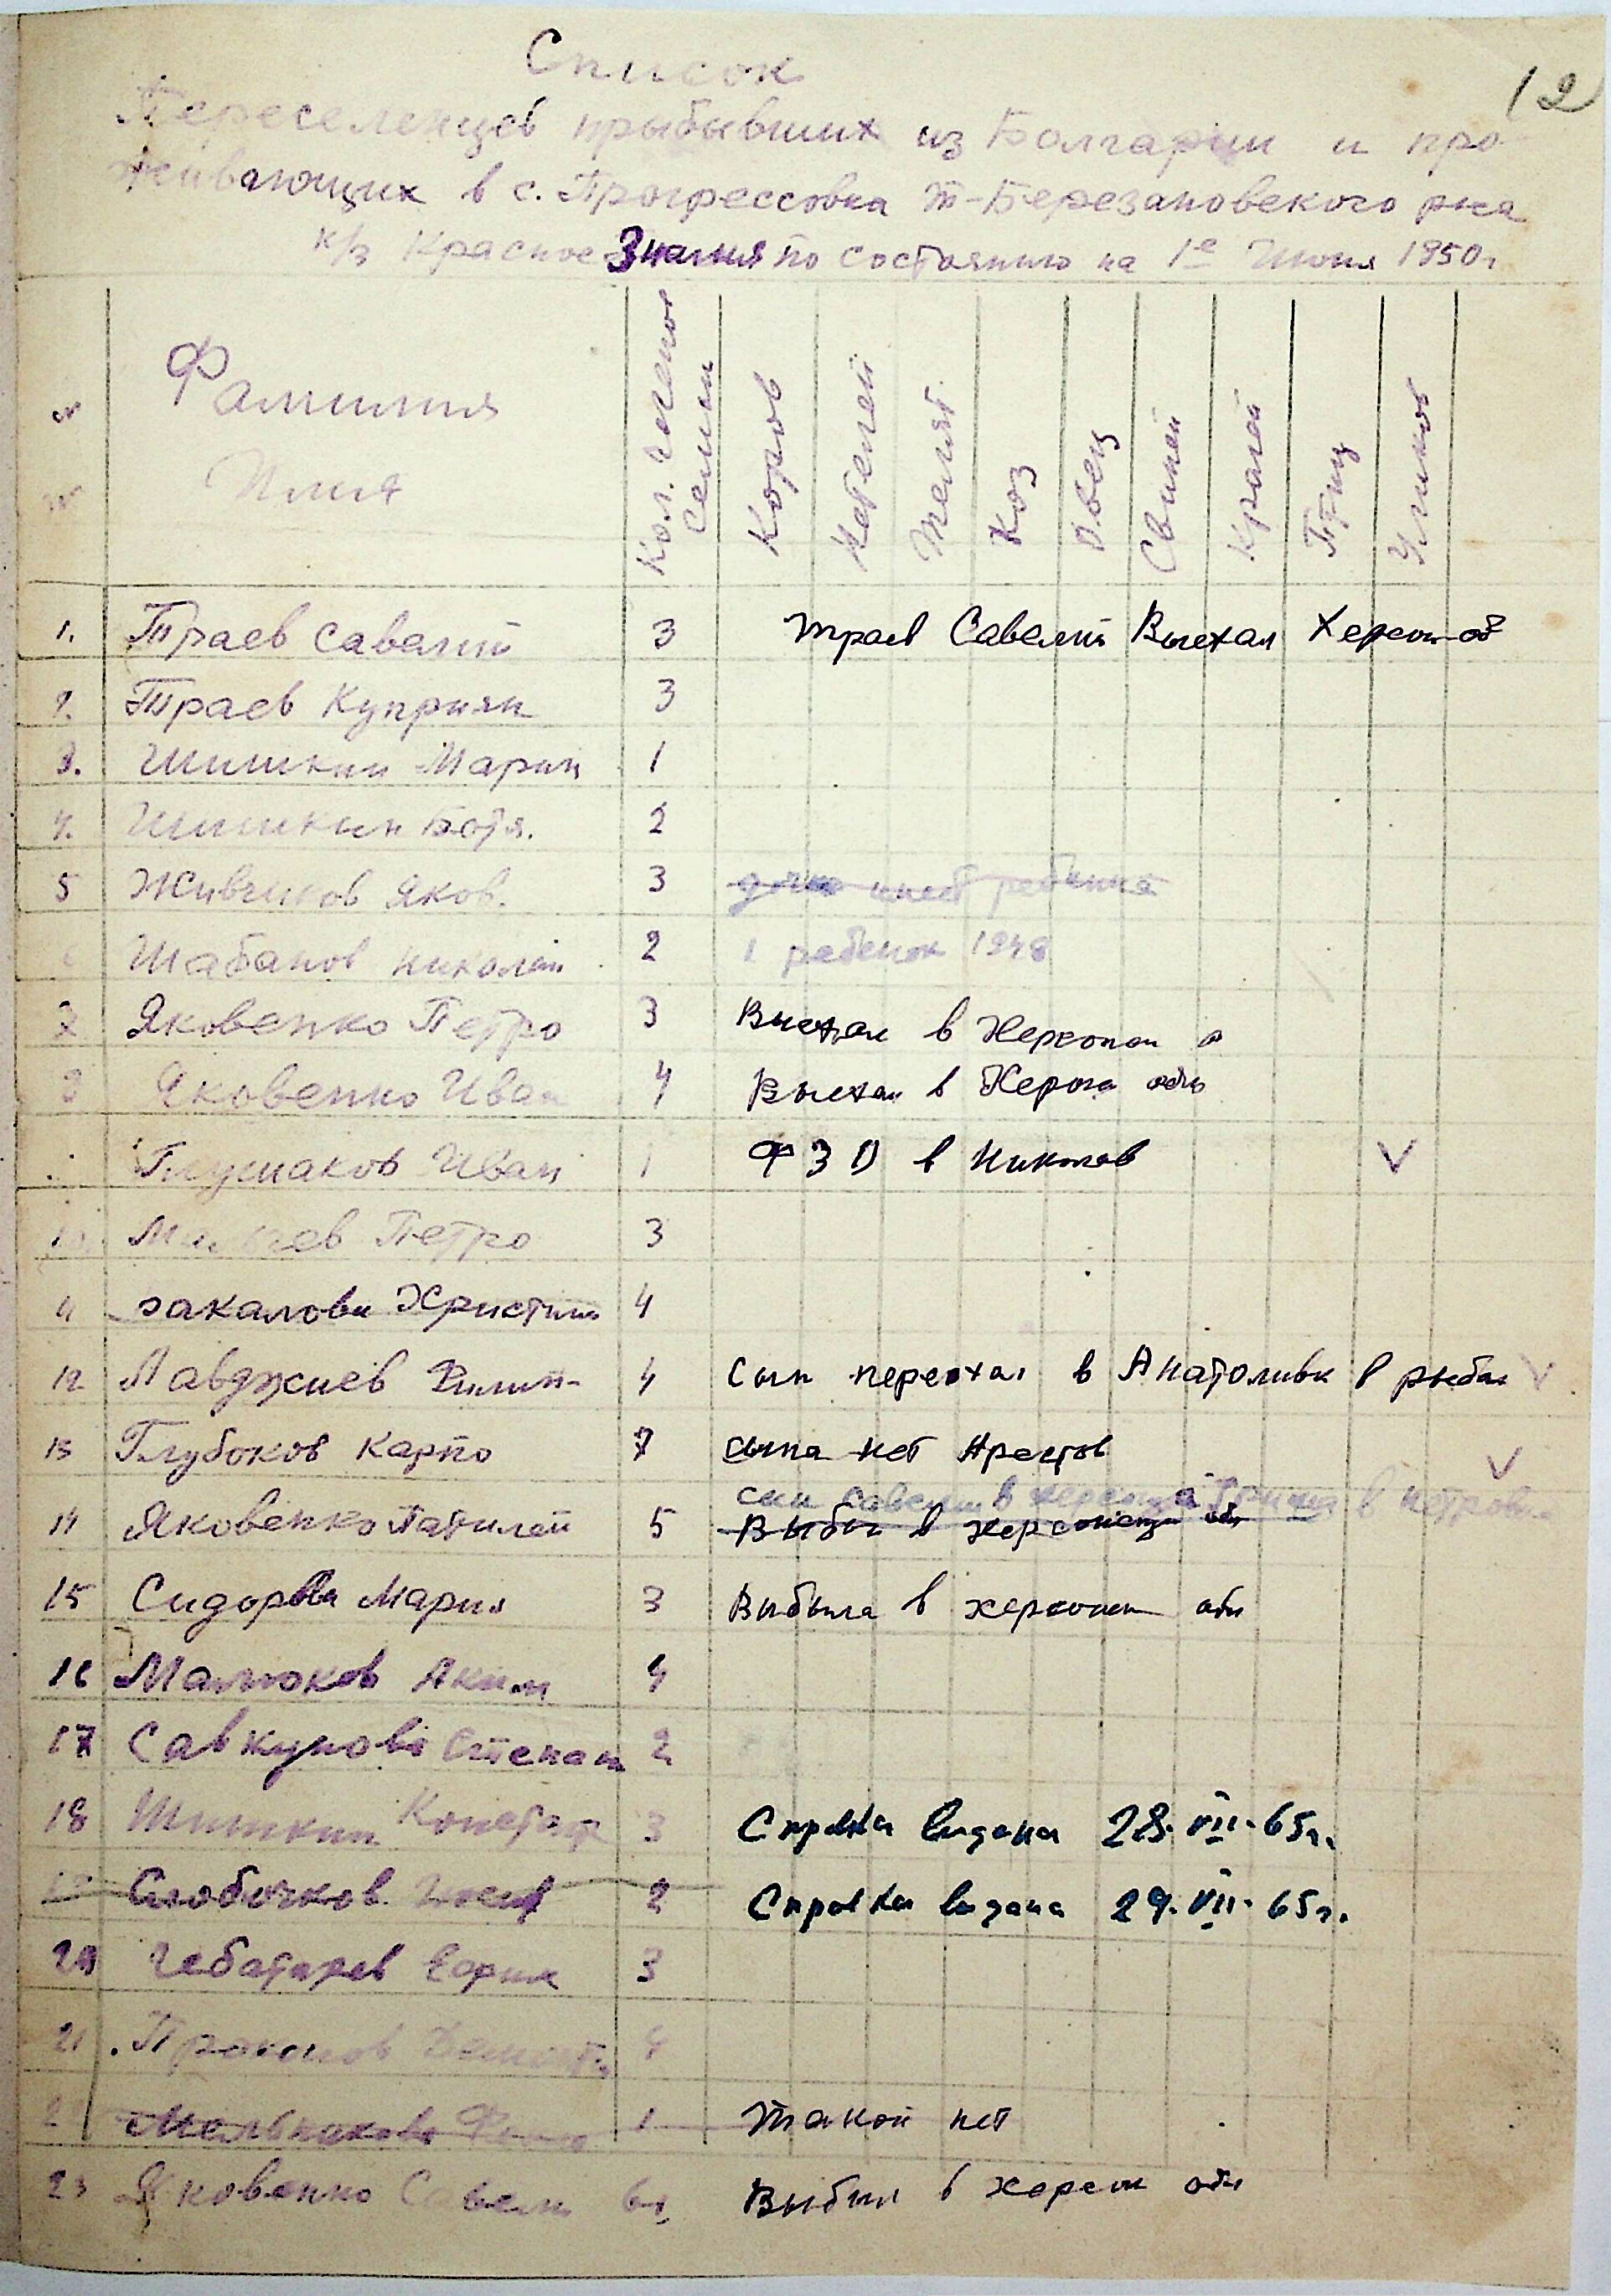 12
Список
Переселенцев прыбывших из Болгарии и про
живающих в с. Прогрессовка Т-Березановского р-на
к/з Красное Знамя по состоянию на 1е Июня 1950 г
№ №
Фамилия Имя
Кол. членов семьи
Коров
Нетелей
Телят.
Коз
Овец
Свиней
Кролей
Птиц
Уликов
1. Траев Савелий 3 Траев Савелий Выехал Херсон об
2. Траев Куприян 3
3. Шишкин Марин 1
4. ШишкинБотя. 2
5 Живчиков Яков. 3 дочка имеет ребенка
Шабанов Николай 2 1 ребенок 1948
7 Яковенко Петро 3 Выехал в Херсонск о
8 Яковенко Иван 4 Выехал в Херсон обл
Глушаков Иван 1 ФЗО в Николаев V
Петро 3
11 Закалова Христина 4
12 Лавджиев Филип- 4 Сын переехал в Анатоливк в рыбал V
13 Глубоков Карпо 7 сына нет Арестов V
сын Савелий в херсон а в петров
14 Яковенко Пантилей 5 Выбыл в херсонск обл
15 Сидорова Мария 3 Выбыла в херсонск обл
16 Малюков Аким 4
17 Савкунова Степан 2
18 Шишкин Констат 3 Справка видана 28.VII.65г.
Слободчков 2 Справка видана 29.VII.65г.
20 Чебатарев Ефрим 3
21. 4
2 Мельникова 1 Такой нет
23 Яковенко Савели 6 Выбыл в херсон обл